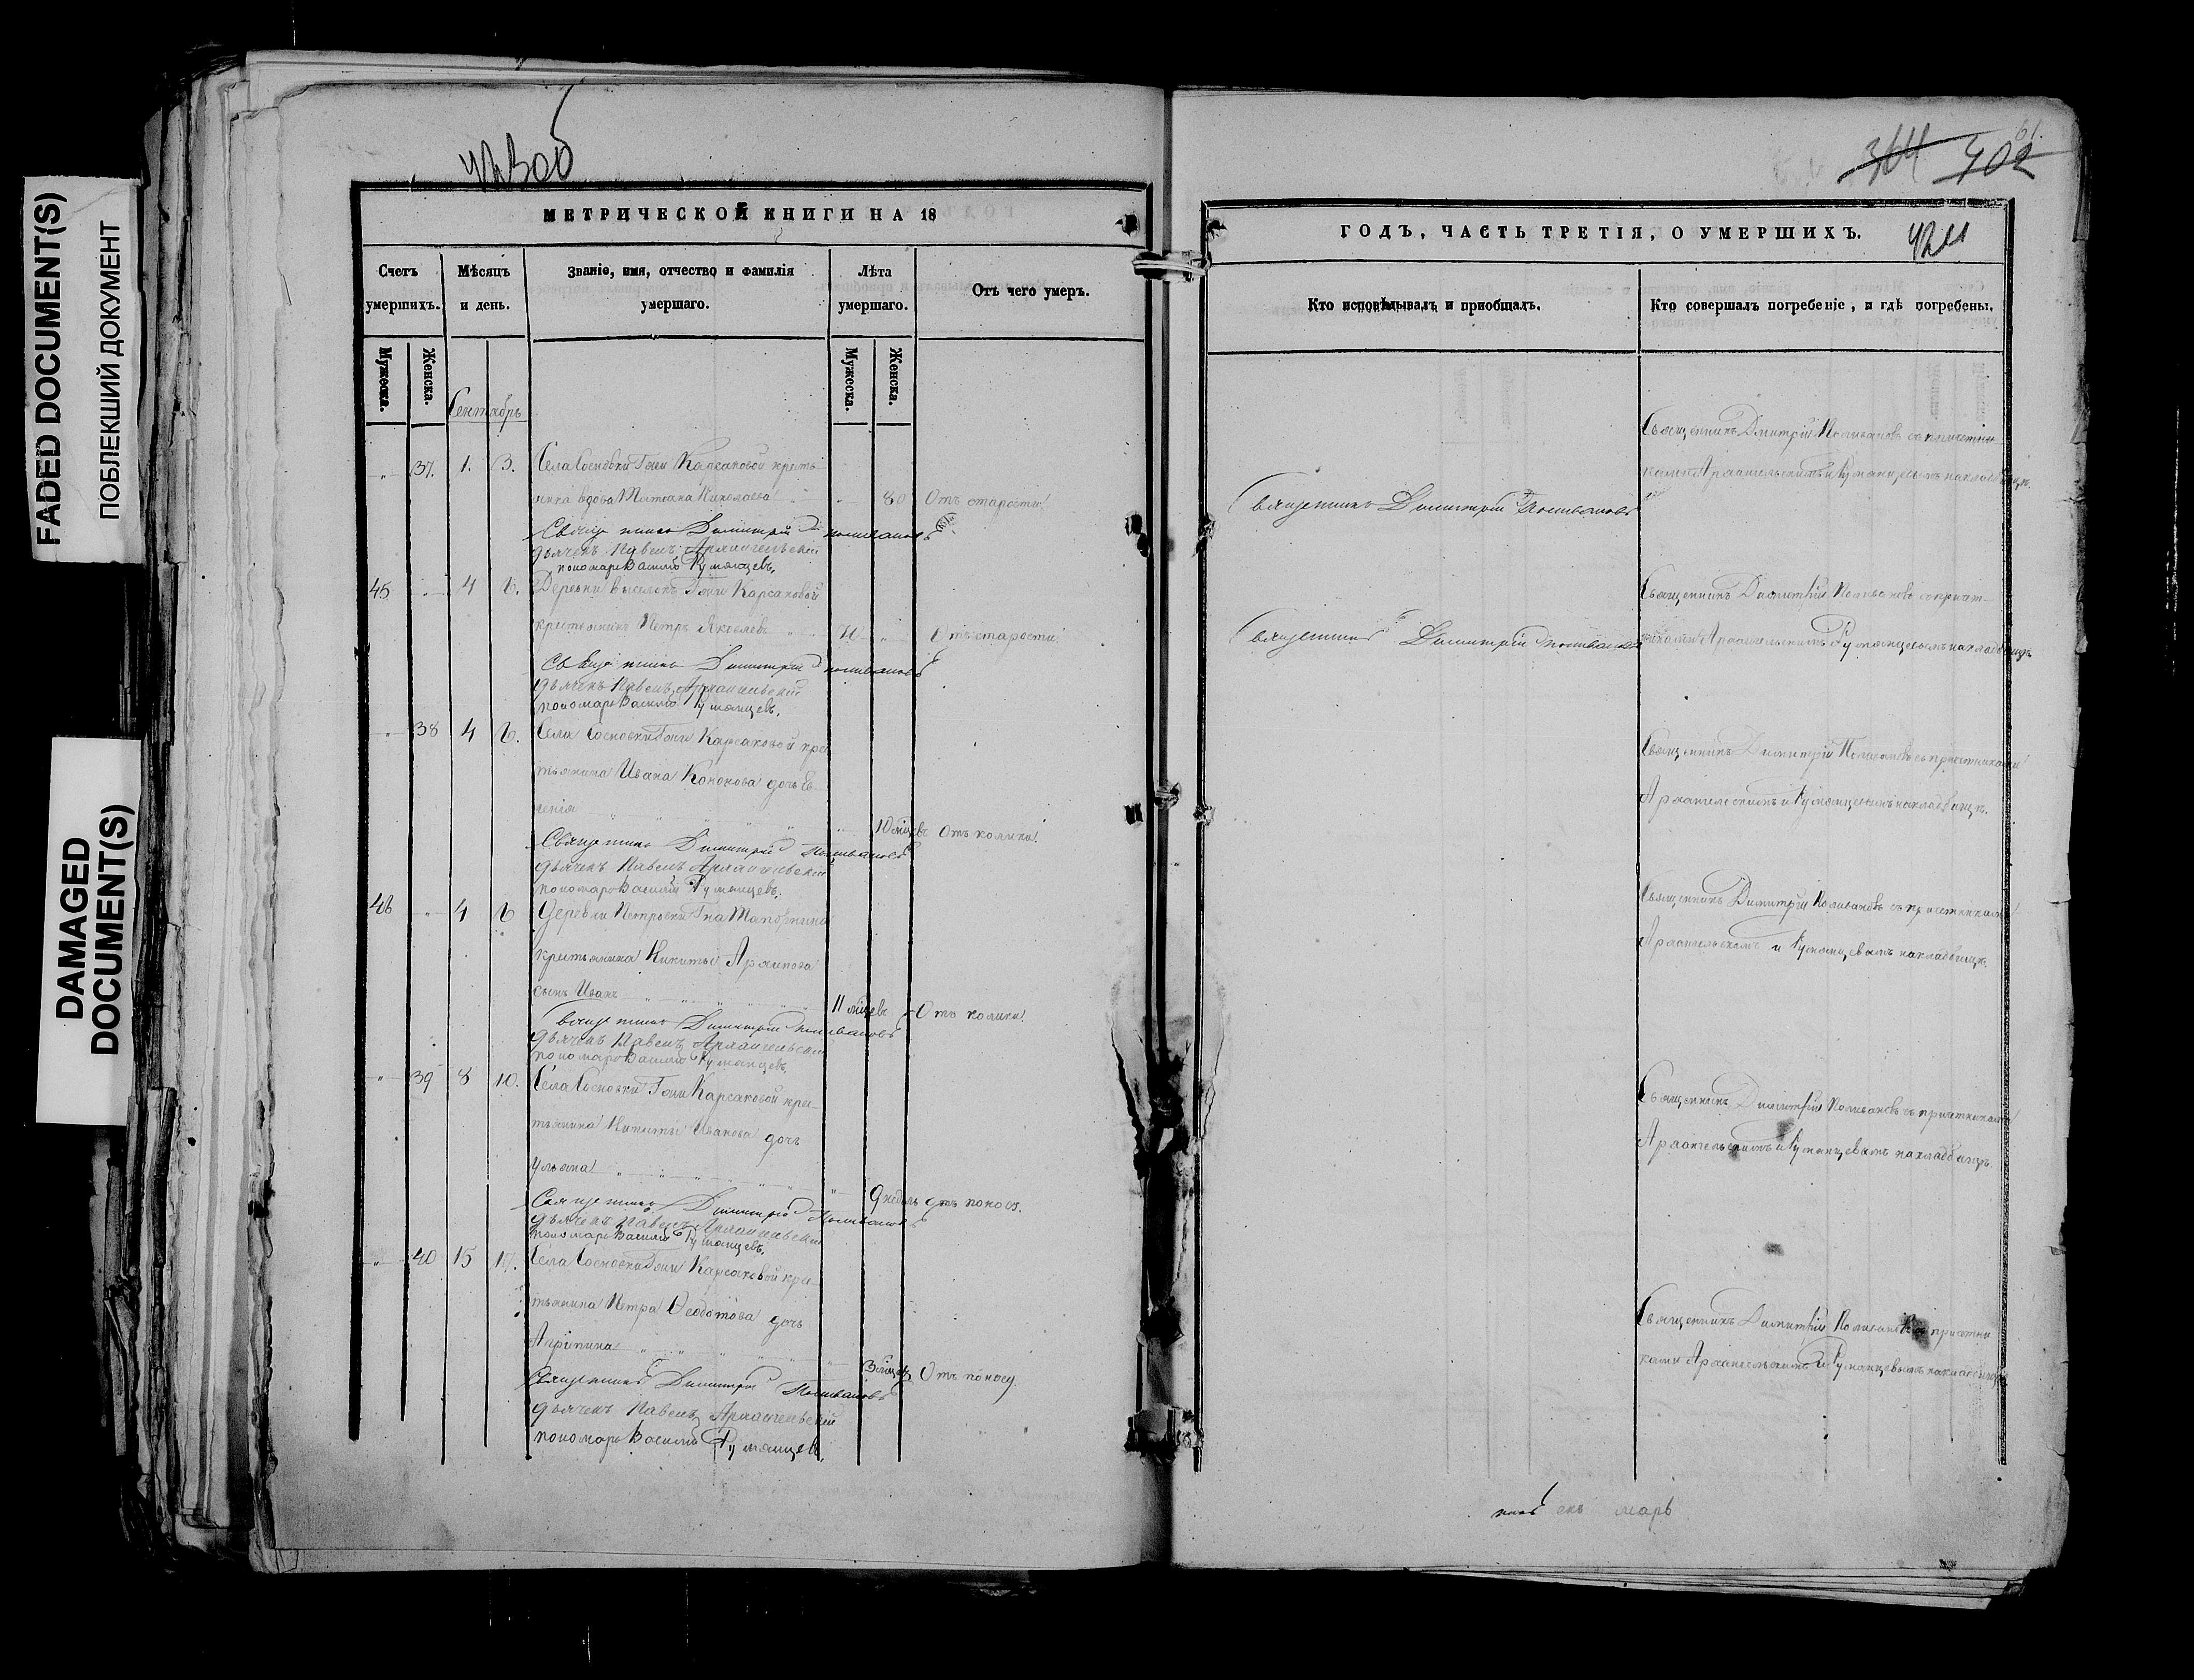 FADED DOCUMENT(S)
ПОБЛЕКШИЙ ДОКУМЕНТ
DAMAGED
DOCUMENT(S)
МЕТРИЧЕСКОЙ КНИГИ НА 18
Счетъ умершихъ.
Мѣсяцъ и день.
Званіе, имя, отчество и фамилія умершаго.
Лѣта умершаго.
Отъ чего умеръ.
Мужеска.
Женска.
Мужеска.
Женска.
Сентябрь
" 37. 1. 3. Села Сосновки Гжи Карсаковой кресть-
янка вдова Татіана Николаева " 80 Отъ старости
Священникъ Димитрій Поливановъ
дьячекъ Павелъ Архангельскій
пономарь Василій Румянцевъ.
45 " 4 6. Деревни Выселокъ Гжи Карсаковой
крестьянинъ Петръ Яковлевъ 70 " Отъ старости
Священникъ Димитрій Поливановъ
дьячекъ Павелъ Архангельскій
пономарь Василій Румянцевъ.
" 38 4 6. Села Сосновки Гжи Карсаковой крес-
тьянина Ивана Кононова дочь Ев-
генія
10 мѣсяцевъ Отъ колики
Священникъ Димитрій Поливановъ
дьячекъ Павелъ Архангельскій
пономарь Василій Румянцевъ.
46 " 4 6 Деревни Петровки Гна
крестьянина Никиты Архипова
сынъ Иванъ
11 мѣсяцевъ Отъ колики
Священникъ Димитрій Поливановъ
дьячекъ Павелъ Архангельскій
пономарь Василій Румянцевъ.
" 39 8 10. Села Сосновки Гжи Карсаковой крес-
тьянина Никиты Иванова дочь
Ульяна
9 недѣль отъ поноса.
Священникъ Димитрій Поливановъ
дьячекъ Павелъ Архангельскій
пономарь Василій Румянцевъ.
" 40 15 17. Села Сосновки Гжи Карсаковой крес-
тьянина Петра Ѳедотова дочь
Агрипина
3 мѣсяц. Отъ поноса
Священникъ Димитрій Поливановъ
дьячекъ Павелъ Архангельскій
пономарь Василій Румянцевъ.
61.
364 402
ГОДЪ, ЧАСТЬ ТРЕТІЯ, О УМЕРШИХЪ.
Кто исповѣдывалъ и приобщалъ.
Кто совершалъ погребеніе, и гдѣ погребены.
Священникъ Дмитрій Поливановъ съ причетни-
ками Архангельскимъ и Румянцевымъ на кладбищѣ.
Священникъ Димитрій Поливановъ
Священникъ Димитрій Поливановъ съ причет-
никами Архангельскимъ Румянцевымъ на кладбищѣ
Священникъ Димитрій Поливановъ
Священникъ Димитрій Поливановъ съ причетниками
Архангельскимъ и Румянцевымъ на кладбищѣ.
Священникъ Димитрій Поливановъ съ причетниками
Архангельскимъ и Румянцевымъ на кладбищѣ.
Священникъ Димитрій Поливановъ съ причетниками
Архангельскимъ и Румянцевымъ на кладбищѣ.
Священникъ Димитрій Поливановъ съ причетни
ками Архангельскимъ и Румянцевымъ на кладбищѣ